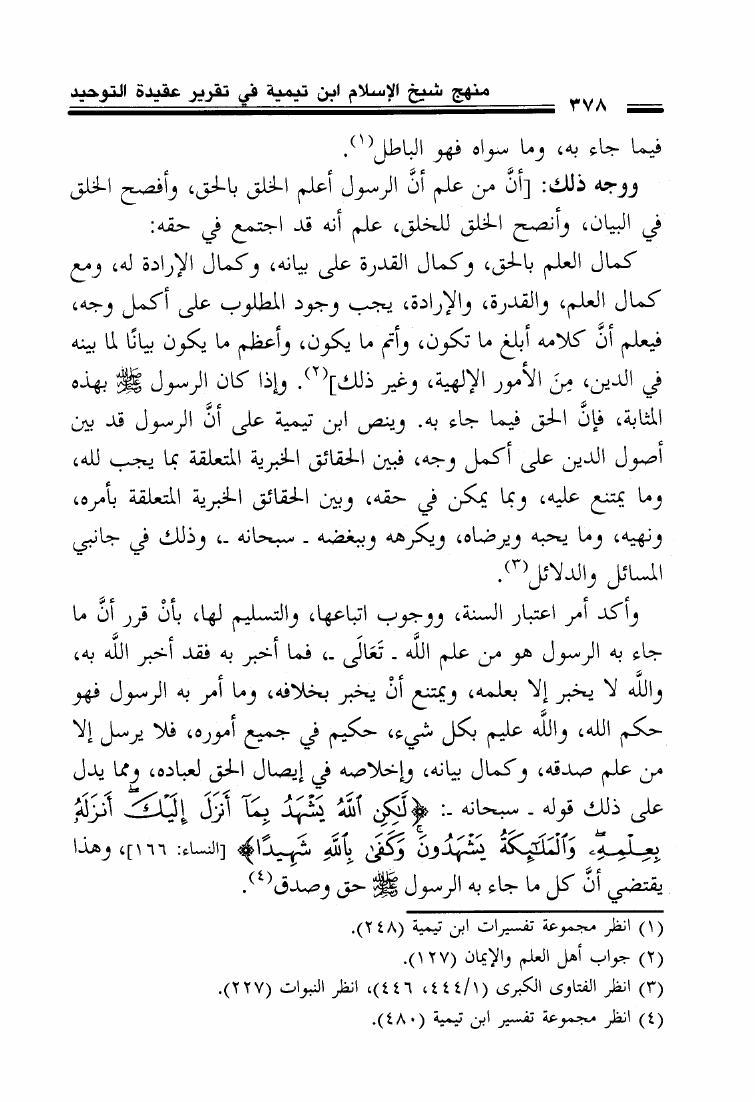 منهج شيخ الإسلام ابن تيمية في تقرير عقيدة التوحيد
٣٧٨
فيما جاء به، وما سواه فهو الباطل(١).
ووجه ذلك: [أنَّ من علم أنَّ الرسول أعلم الخلق بالحق، وأفصح الخلق
في البيان، وأنصح الخلق للخلق، علم أنه قد اجتمع في حقه:
كمال العلم بالحق، وكمال القدرة على بيانه، وكمال الإرادة له، ومع
كمال العلم، والقدرة، والإرادة، يجب وجود المطلوب على أكمل وجه،
فيعلم أنَّ كلامه أبلغ ما تكون، وأتم ما يكون، وأعظم ما يكون بيانًا لما بينه
في الدين، مِنَ الأمور الإلهية، وغير ذلك](٢). وإذا كان الرسول ﷺ بهذه
المثابة، فإنَّ الحق فيما جاء به. وينص ابن تيمية على أنَّ الرسول قد بين
أصول الدين على أكمل وجه، فبين الحقائق الخبرية المتعلقة بما يجب لله،
وما يمتنع عليه، وبما يمكن في حقه، وبين الحقائق الخبرية المتعلقة بأمره،
ونهيه، وما يحبه ويرضاه، ويكرهه وببغضه ـ سبحانه ـ، وذلك في جانبي
المسائل والدلائل(٣).
وأكد أمر اعتبار السنة، ووجوب اتباعها، والتسليم لها، بأنْ قرر أنَّ ما
جاء به الرسول هو من علم اللَّه ـ تَعَالَى ـ، فما أخبر به فقد أخبر اللَّه به،
واللَّه لا يخبر إلا بعلمه، ويمتنع أنْ يخبر بخلافه، وما أمر به الرسول فهو
حكم الله، واللَّه عليم بكل شيء، حكيم في جميع أموره، فلا يرسل إلا
من علم صدقه، وكمال بيانه، وإخلاصه في إيصال الحق لعباده، ومما يدل
على ذلك قوله ـ سبحانه ـ: ﴿لَّٰكِنِ ٱللَّهُ يَشْهَدُ بِمَآ أَنزَلَ إِلَيْكَۖ أَنزَلَهُۥ
بِعِلْمِهِۦۖ وَٱلْمَلَٰٓئِكَةُ يَشْهَدُونَۚ وَكَفَىٰ بِٱللَّهِ شَهِيدًا﴾ [النساء: ١٦٦]، وهذا
يقتضي أنَّ كل ما جاء به الرسول ﷺ حق وصدق(٤).
(١) انظر مجموعة تفسيرات ابن تيمية (٢٤٨).
(٢) جواب أهل العلم والإيمان (١٢٧).
(٣) انظر الفتاوى الكبرى (٤٤٤/١، ٤٤٦)، انظر النبوات (٢٢٧).
(٤) انظر مجموعة تفسير ابن تيمية (٤٨٠).